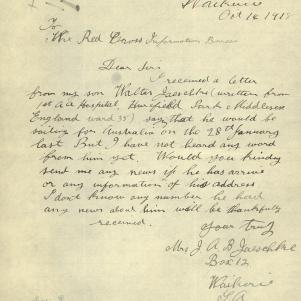 Waikerie
Oct 14 1918
To
The Red Cross Information Bureau
Dear Sir
I received a letter
from my son Walter Jaeschke (written from
1st A A Hospital, Harefield Park Middlesex
England ward 35) say that he would be
sailing for Australia on the 28th January
last But I have not heard any word
from him yet. Would you kindly
send me any news if he has arrive
or any information of his address
I don't know any number he had
any news about him will be thankfully
received.
yours truly
Mrs J. A. B Jaeschke
Box 12
Waikerie
S A